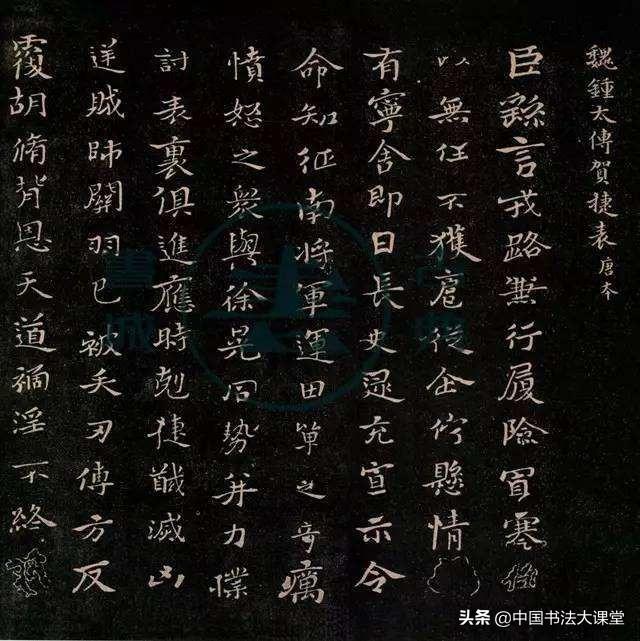 魏鍾太傅賀捷表 唐本
臣繇言戎路兼行履險冒寒
以無任不獲扈從企佇懸情
有寧舍即日長史逯充宣示令
命知征南將軍運田單之奇厲
憤怒之衆與徐晃同勢并力撲
討表裏俱進應時剋捷馘滅凶
逆賊帥關羽已被矢刃傅方反
覆胡脩背恩天道禍淫不終
頭条 @中国书法大课堂